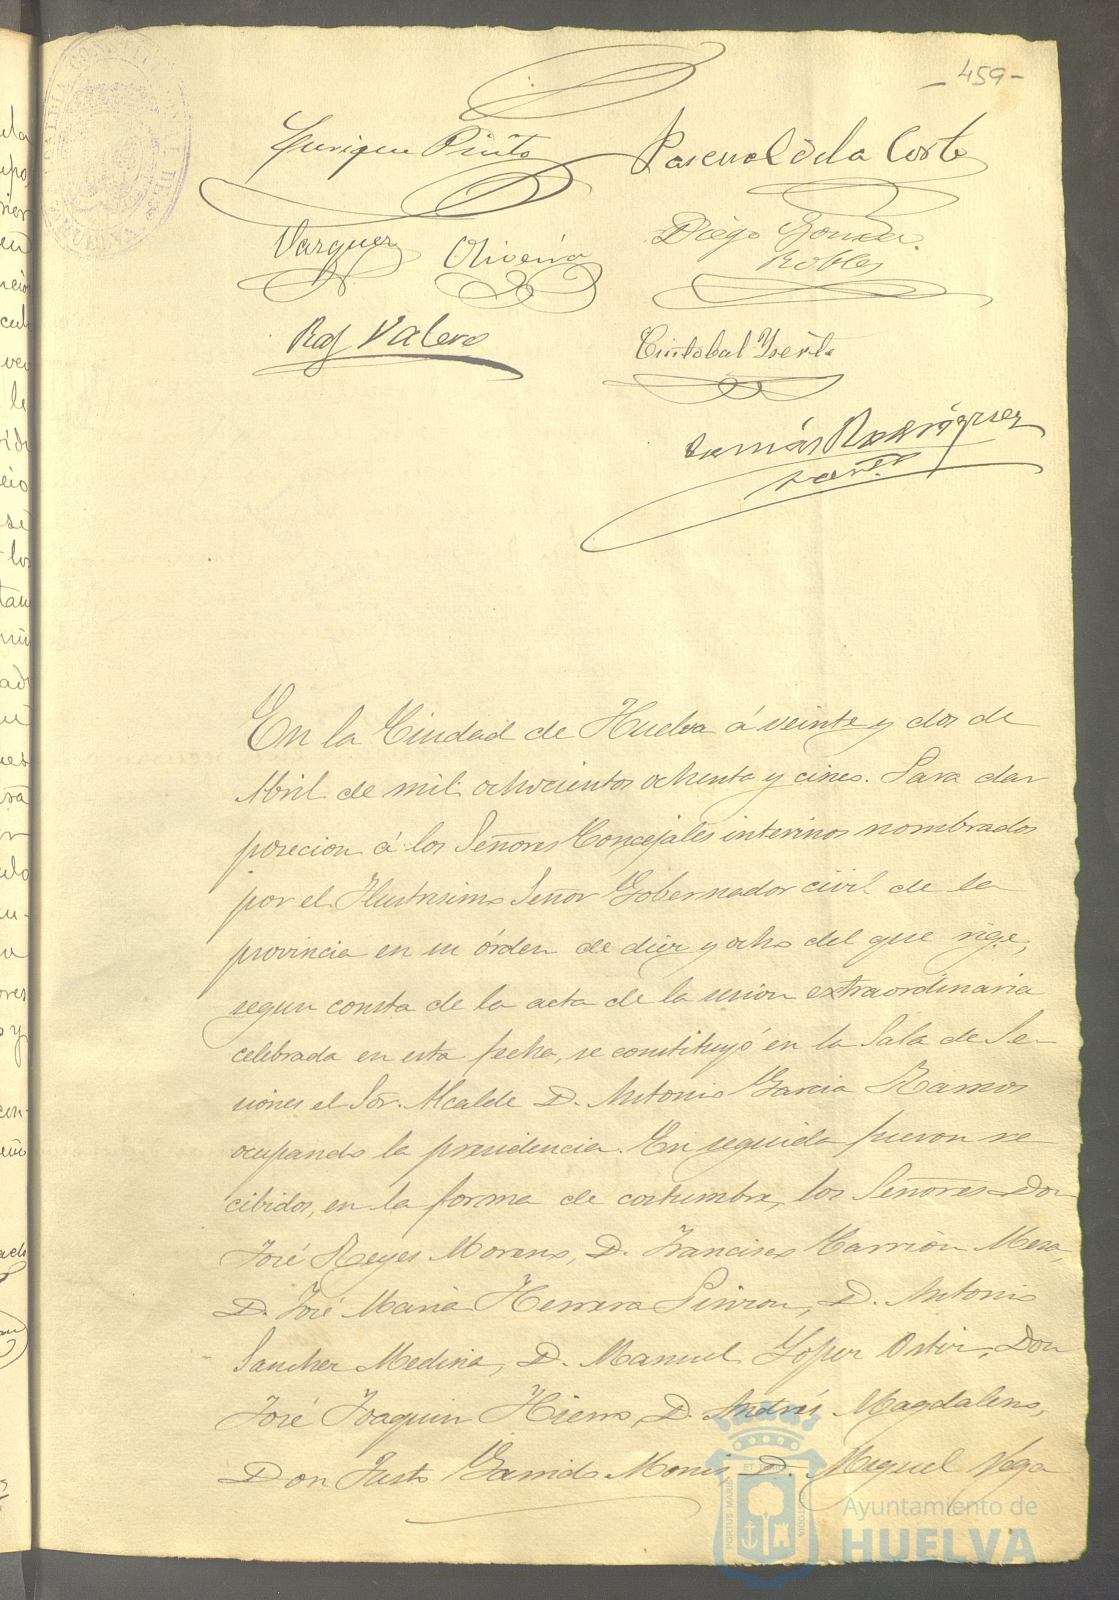 - 459 -
Enrique Pinto
Pascual de la Corte
Vazquez
Oliveira
Diego
Robles
Raf Valero
Cristobal
Tomás Rodríguez
En la Ciudad de Huelva á veinte y dos de
Abril de mil ochocientos ochenta y cinco. Para dar
posecion á los Señores Concejales interinos nombrados
por el Ilustrisimo Señor Gobernador civil de la
provincia en su órden de diez y ocho del que rige,
segun consta de la acta de la sesion extraordinaria
celebrada en esta fecha, se constituyó en la Sala de Se-
siones el Sor. Alcalde D. Antonio Garcia Ramos
ocupando la presidencia. En seguida fueron re
cibidos, en la forma de costumbre, los Señores Don
José Reyes Moreno, D. Francisco Carrión Mesa,
D. José Maria Herrera Pinzon, D. Antonio
Sanchez Medina, D. Manuel Lopez Ortiz, Don
José Joaquin Hierro, D. Andrés Magdaleno,
Don Justo Garrido Monis, D. Miguel Vega
Ayuntamiento de
HUELVA